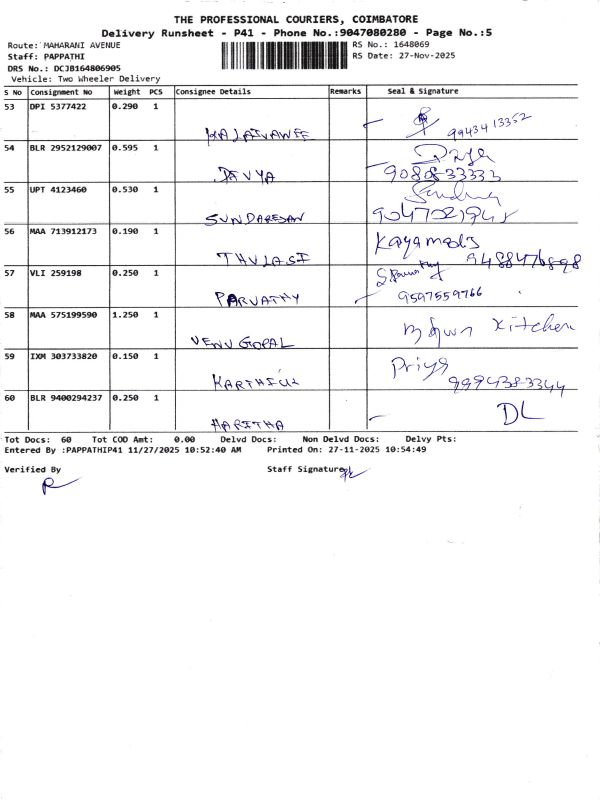 THE PROFESSIONAL COURIERS, COIMBATORE
Delivery Runsheet - P41 - Phone No.:9047080280 - Page No.:5
Route: MAHARANI AVENUE RS No.: 1648069
Staff: PAPPATHI RS Date: 27-Nov-2025
DRS No.: DCJB164806905
Vehicle: Two Wheeler Delivery
S No Consignment No Weight PCS Consignee Details Remarks Seal & Signature
53 DPI 5377422 0.290 1
KALAIVANEE 9943413352
54 BLR 2952129007 0.595 1
DIVYA
55 UPT 4123460 0.530 1
SUNDARESAN
56 MAA 713912173 0.190 1
THULASI
57 VLI 259198 0.250 1
PARVATHY 9597559766
58 MAA 575199590 1.250 1
VENUGOPAL Kitchen
59 IXM 303733820 0.150 1 Priya
9994383344
60 BLR 9400294237 0.250 1 DL
HARITHA
Tot Docs: 60 Tot COD Amt: 0.00 Delvd Docs: Non Delvd Docs: Delvy Pts:
Entered By :PAPPATHIP41 11/27/2025 10:52:40 AM Printed On: 27-11-2025 10:54:49
Verified By Staff Signature